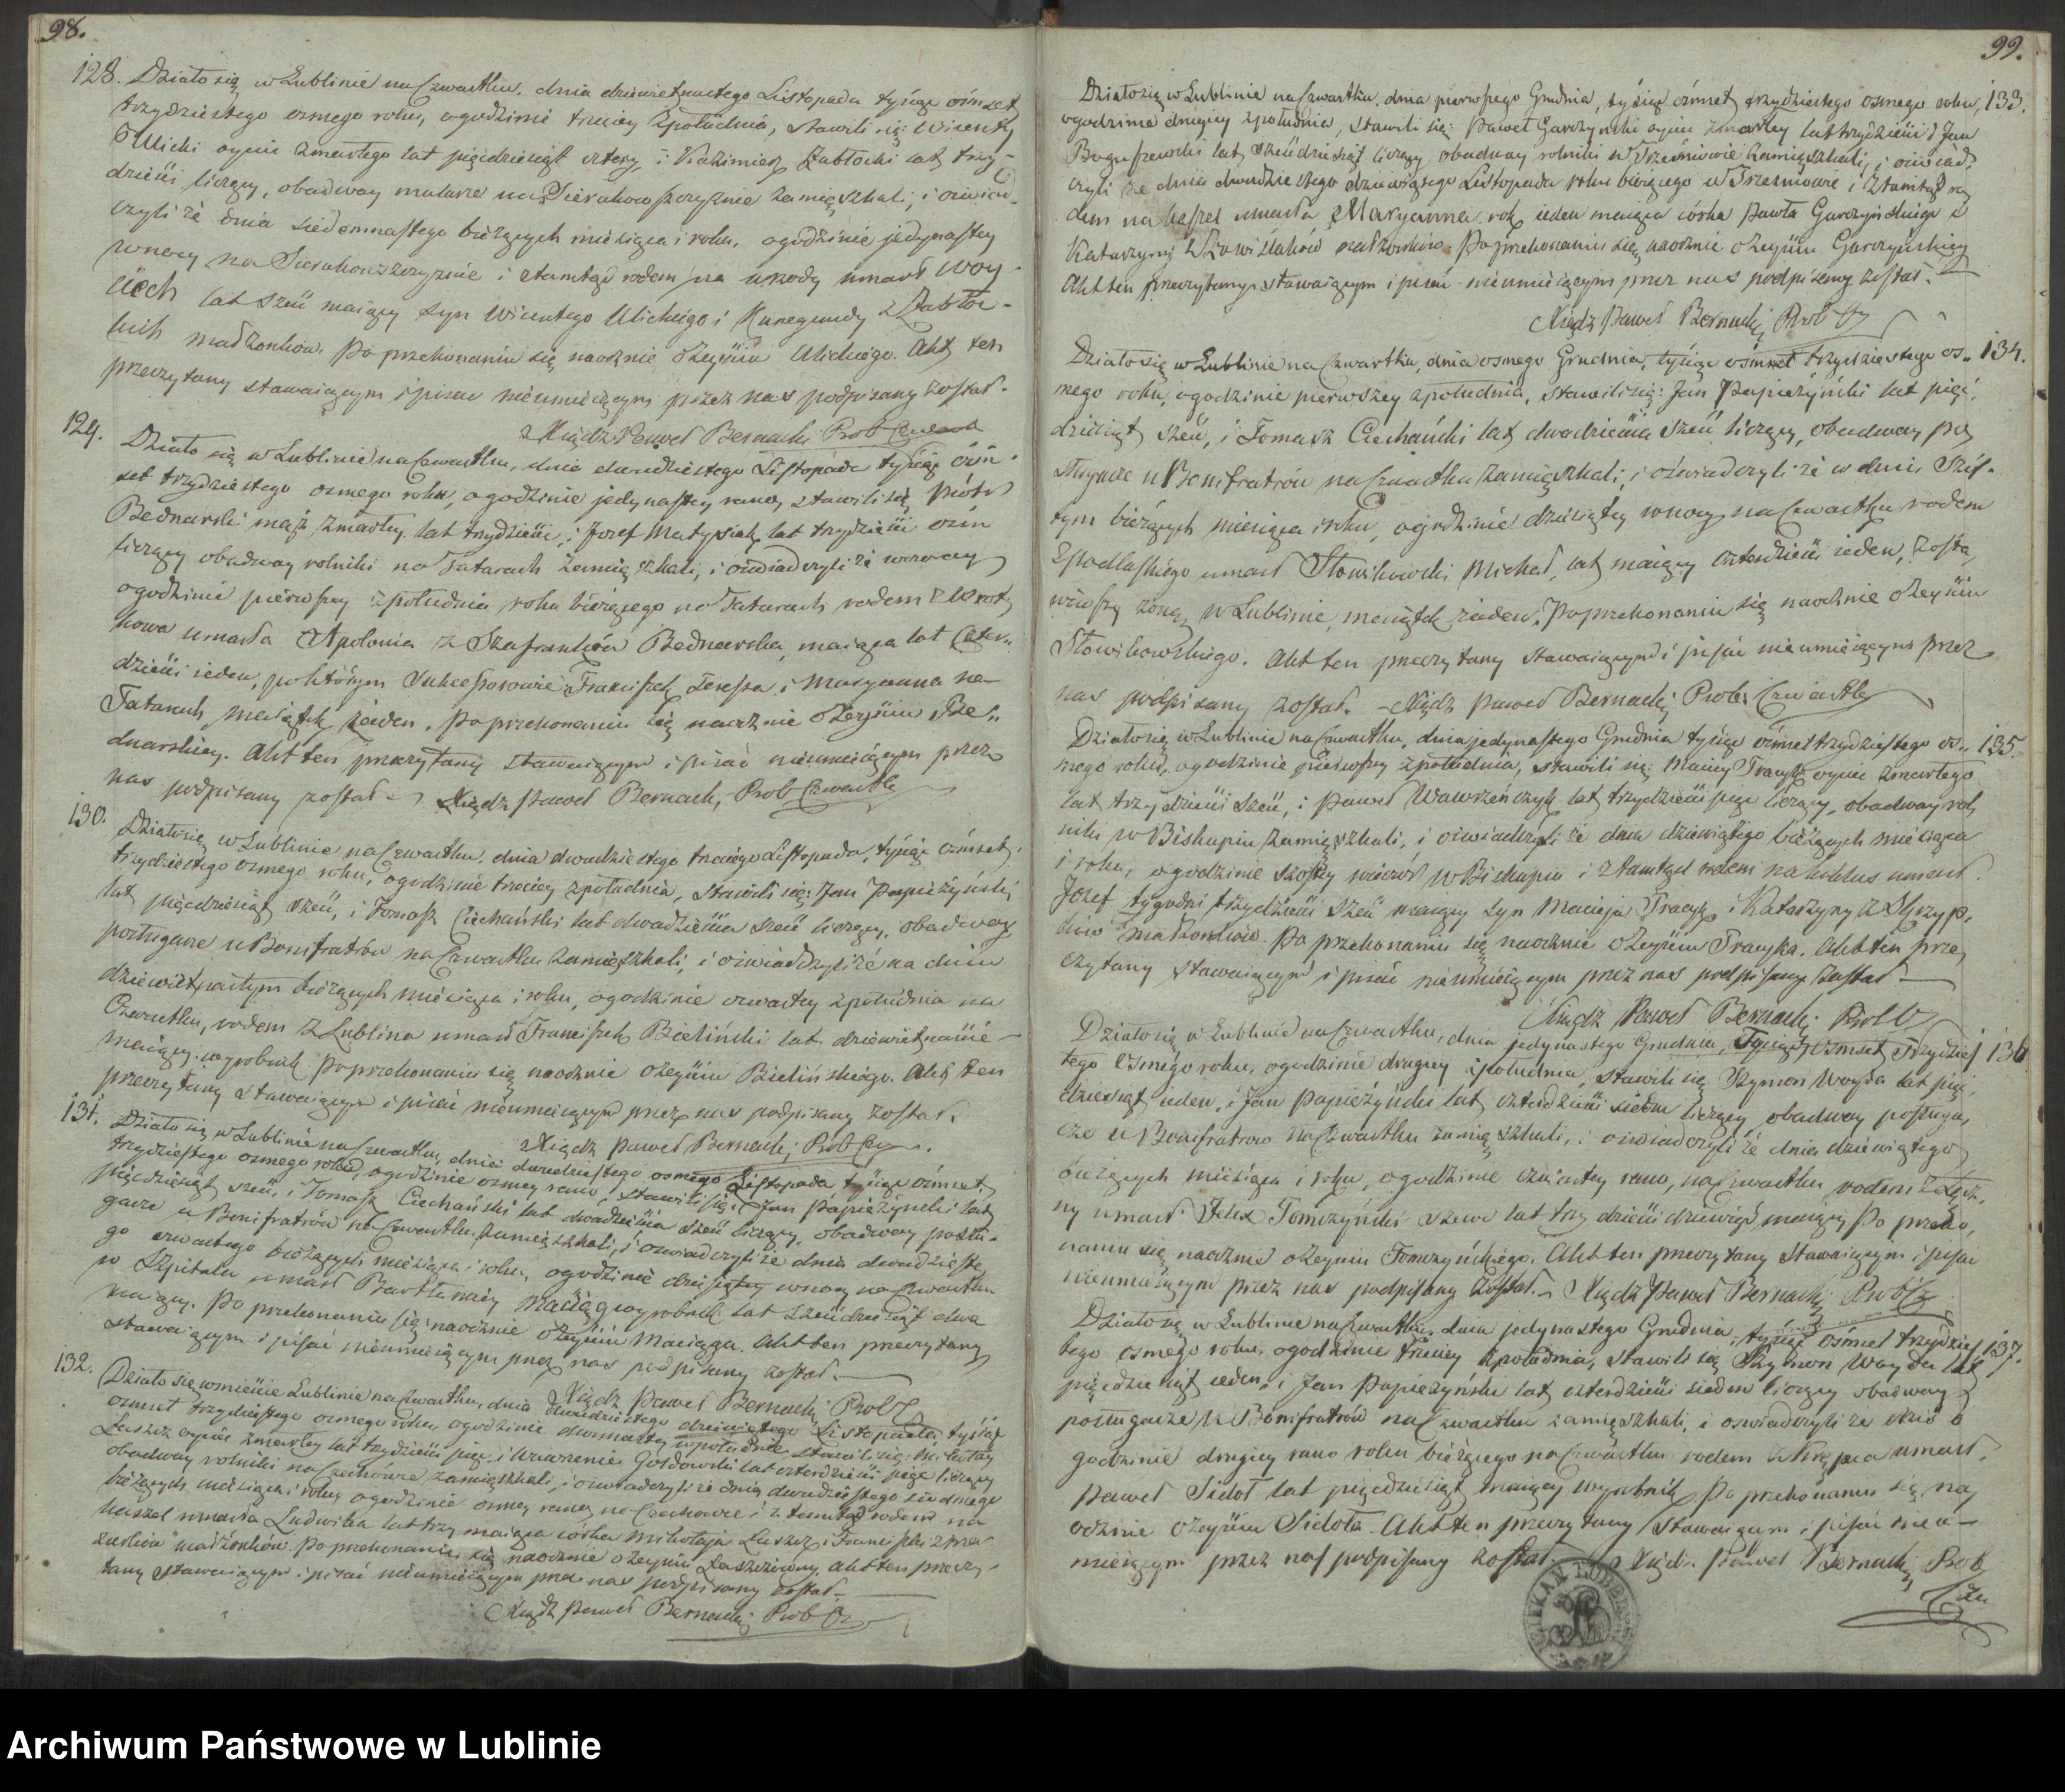 98.
128. Działo się w Lublinie na Czwartku. dnia dziewietnastego Listopada tysiąc ośmset
trzydziestego osmego roku, o godzinie trzeciey z południa, stawili się: Wicenty
Ulicki oyciec zmarłego lat pięćdziesiąt cztery, i Kazimierz Zabłocki lat trzy-
dzieści liczący, obadway mularze na Sierakowszczyznie zamięszkali, i oświad-
czyli że dnia siedemnastego bieżących miesiąca i roku, o godzinie jedynastey
w nocy na Sierakowszczyznie i ztamtąd rodem na wrzody umarł Woy-
ciech lat sześć maiący syn Wicentego Ulickiego i Kunegundy z Zabłoc-
kich małżonków. Po przekonaniu się naocznie o zeyściu Ulickiego. Akt ten
przeczytany stawaiącym i pisać nieumieiącym przez nas podpisany został.
Xiądz Paweł Bernacki Prob
129. Działo się w Lublinie na Czwartku, dnia dwudziestego Listopada tysiąc ośm-
set trzydziestego osmego roku, o godzinie jedynastey rano, stawili się Piotr
Bednarski mąż zmarłey lat trzydzieści, i Jozef Matysiak lat trzydzieści ośm
liczący obadway rolniki na Tatarach zamięszkali, i oświadczyli że wczoray
o godzinie pierwszey z południa roku bieżącego na Tatarach rodem z
umarła Apolonia z Szafranków Bednarska, maiąca lat czter-
dzieści ieden, po którym Sukcessorowie Franciszek Teressa i Maryanna na
Tatarach, maiątek żaden. Po przekonaniu się naocznie o zeyściu Bed-
narskiey. Akt ten przeczytany stawaiącym i pisać nieumieiącym przez
nas podpisany został. Xiądz Paweł Bernacki, Prob Czwartku
130. Działo się w Lublinie na Czwartku. dnia dwudziestego trzeciego Listopada, tysiąc ośmset
trzydziestego osmego roku, o godzinie trzeciey z południa, stawili się: Jan Papieżyński
lat pięćdziesiąt sześć, i Tomasz Ciechański lat dwadzieścia sześć liczący, obadway
posługacze u Bonifratrów na Czwartku zamięszkali, i oświadczyli że na dniu
dziewiętnastym bieżących miesiąca i roku, o godzinie czwartey z południa na
Czwartku, rodem z Lublina umarł Franciszek Bieliński lat dziewiętnaście
maiący wyrobnik Po przekonaniu się naocznie o zeyściu Bielińskiego. Akt ten
przeczytany stawaiącym i pisać nieumieiącym przez nas podpisany został.
Xiądz Paweł Bernacki, Prob Czw
131. Działo się w Lublinie na Czwartku, dnia dwudziestego osmego Listopada tysiąc ośmset
trzydziestego osmego roku, o godzinie osmey rano, stawili się: Jan Papieżyński lat
pięćdziesiąt sześć, i Tomasz Ciechański lat dwadzieścia sześć liczący, obadway posłu-
gacze u Bonifratrów na Czwartku zamięszkali, i oświadczyli że dnia dwudzieste-
go czwartego bieżących miesiąca i roku, o godzinie dziesiątey w nocy na Czwartku
w Szpitalu umarł Bartłomiey Maciąg wyrobnik lat sześćdziesiąt dwa
maiący. Po przekonaniu się naocznie o zeyściu Maciąga. Akt ten przeczytany
stawaiącym i pisać nieumieiącym przez nas podpisany został.
Xiądz Paweł Bernacki, Prob Cz
132. Działo się w mieście Lublinie na Czwartku, dnia dwudziestego dziewiątego Listopada tysiąc
osmset trzydziestego osmego roku, o godzinie dwunastey w południe stawili się: Mikołay
Laszcz oyciec zmarłey lat trzydzieści pięć, i Wawrzeniec Gosdowski lat czterdzieści pięć liczący
obadway rolniki na Czechówce zamięszkali, i oświadczyli że dnia dwudziestego siódmego
bieżących miesiąca i roku o godzinie osmey rano na Czechowce i z tamtąd rodem na
kaszel umarła Ludwika lat trzy maiąca córka Mikołaja Laszcz i Franciszki z Ma-
zurków małżonków. Po przekonaniu się naocznie o zeyściu Laszczówny. Akt ten przeczy-
tany stawaiącym i pisać nieumieiącym przez nas podpisany został.
Xiądz Paweł Bernacki, Prob Cz
99.
Działo się w Lublinie na Czwartku. dnia pierwszego Grudnia, tysiąc ośmset trzydziestego osmego roku, 133.
o godzinie drugiey z południa, stawili się: Paweł Garczynski oyciec zmarłey lat trzydzieści i Jan
Boguszewski lat sześćdziesiąt liczący, obadway rolniki w Trześniowie zamięszkali, i oświad-
czyli że dnia dwudziestego dziewiątego Listopada roku bieżącego w Trześniowie i ztamtąd ro-
dem na kaszel umarła Maryanna rok ieden maiąca córka Pawła Garczyńskiego i
Katarzyny z małżonków. Po przekonaniu się naocznie o zeyściu Garczyńskiey
Akt ten przeczytany stawaiącym i pisać nieumieiącym przez nas podpisany został.
Xiądz Paweł Bernacki, Prob Cz
Działo się w Lublinie na Czwartku, dnia osmego Grudnia, tysiąc osmset trzydziestego os- 134.
mego roku, o godzinie pierwszey z południa, stawili się: Jan Papieżyński lat pięć-
dziesiąt sześć, i Tomasz Ciechański lat dwadzieścia sześć liczący, obadway po-
sługacze u Bonifratrów na Czwartku zamięszkali, i oświadczyli że w dniu szós-
tym bieżących miesiąca i roku, o godzinie dziesiątey w nocy na Czwartku rodem
z Podlaskiego umarł Słowikowski Michał, lat maiący czterdzieści ieden, zosta-
wiwszy żonę w Lublinie, maiątek żaden. Po przekonaniu się naocznie o zeyściu
Słowikowskiego. Akt ten przeczytany stawaiącym i pisać nieumieiącym przez
nas podpisany został. Xiądz Paweł Bernacki, Prob: Czwartku
Działo się w Lublinie na Czwartku, dnia jedynastego Grudnia tysiąc ośmset trzydziestego os- 135.
mego roku, o godzinie pierwszey z południa, stawili się: Maciey Tracyk oyciec zmarłego
lat trzydzieści sześć, i Paweł Wawrzeńczyk lat trzydzieści pięć liczący, obadway rol-
niki w Biskupiu zamięszkali, i oświadczyli że dnia dziewiątego bieżących miesiąca
i roku, o godzinie szostey wieczór w Biskupiu i ztamtąd rodem na koklus umarł
Jozef tygodni trzydzieści sześć maiący syn Macieja Tracyk i Katarzyny z Skrzyp-
ków małżonków. Po przekonaniu się naocznie o zeyściu Tracyka. Akt ten prze-
czytany stawaiącym i pisać nieumieiącym przez nas podpisany został
Xiądz Paweł Bernacki, Prob Cz
Działo się w Lublinie na Czwartku, dnia jedynastego Grudnia, Tysiąc Osmset Trzydzies- 136
tego Osmego roku, o godzinie drugiey z południa, stawili się Szymon Woyda lat pięć-
dziesiąt ieden, i Jan Papieżyński lat czterdzieści siedm liczący, obadway posługa-
cze u Bonifratrow na Czwartku zamięszkali, i oświadczyli że dnia dziewiątego
bieżących miesiąca i roku, o godzinie czwartey rano, na Czwartku rodem z Łęcz-
ny umarł Felix Tomczyński szewc lat trzydzieści dziewięć maiący Po przeko-
naniu się naocznie o zeyściu Tomczyńskiego. Akt ten przeczytany stawaiącym i pisać
nieumieiącym przez nas podpisany został. Xiądz Paweł Bernacki, Prob Cz
Działo się w Lublinie na Czwartku. dnia jedynastego Grudnia, tysiąc ośmset trzydzies- 137.
tego osmego roku, o godzinie trzeciey z południa, stawili się Szymon Woyda lat
pięćdziesiąt ieden, i Jan Papieżyński lat czterdzieści siedem liczący obadway
posługacze u Bonifratrów na Czwartku zamięszkali, i oswiadczyli że dziś o
godzinie drugiey rano roku bieżącego na Czwartku rodem umarł
Paweł Sidoł lat pięćdziesiąt maiący wyrobnik Po przekonaniu się na-
ocznie o zeyściu Sidoła. Akt ten przeczytany stawaiącym i pisać nieu-
mieiącym przez nas podpisany został. Xiądz Paweł Bernacki, Prob
Czw
Archiwum Państwowe w Lublinie